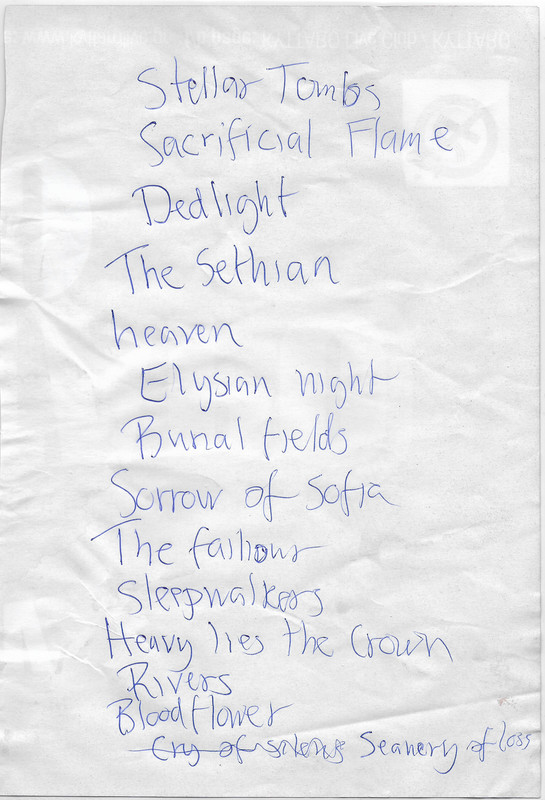 Stellar Tombs
Sacrificial Flame
Dedlight
The Sethian
heaven
Elysian night
Burial fields
Sorrow of Sofia
The failiour
Sleepwalkers
Heavy lies the Crown
Rivers
Bloodflower
Cry of Seanery of loss